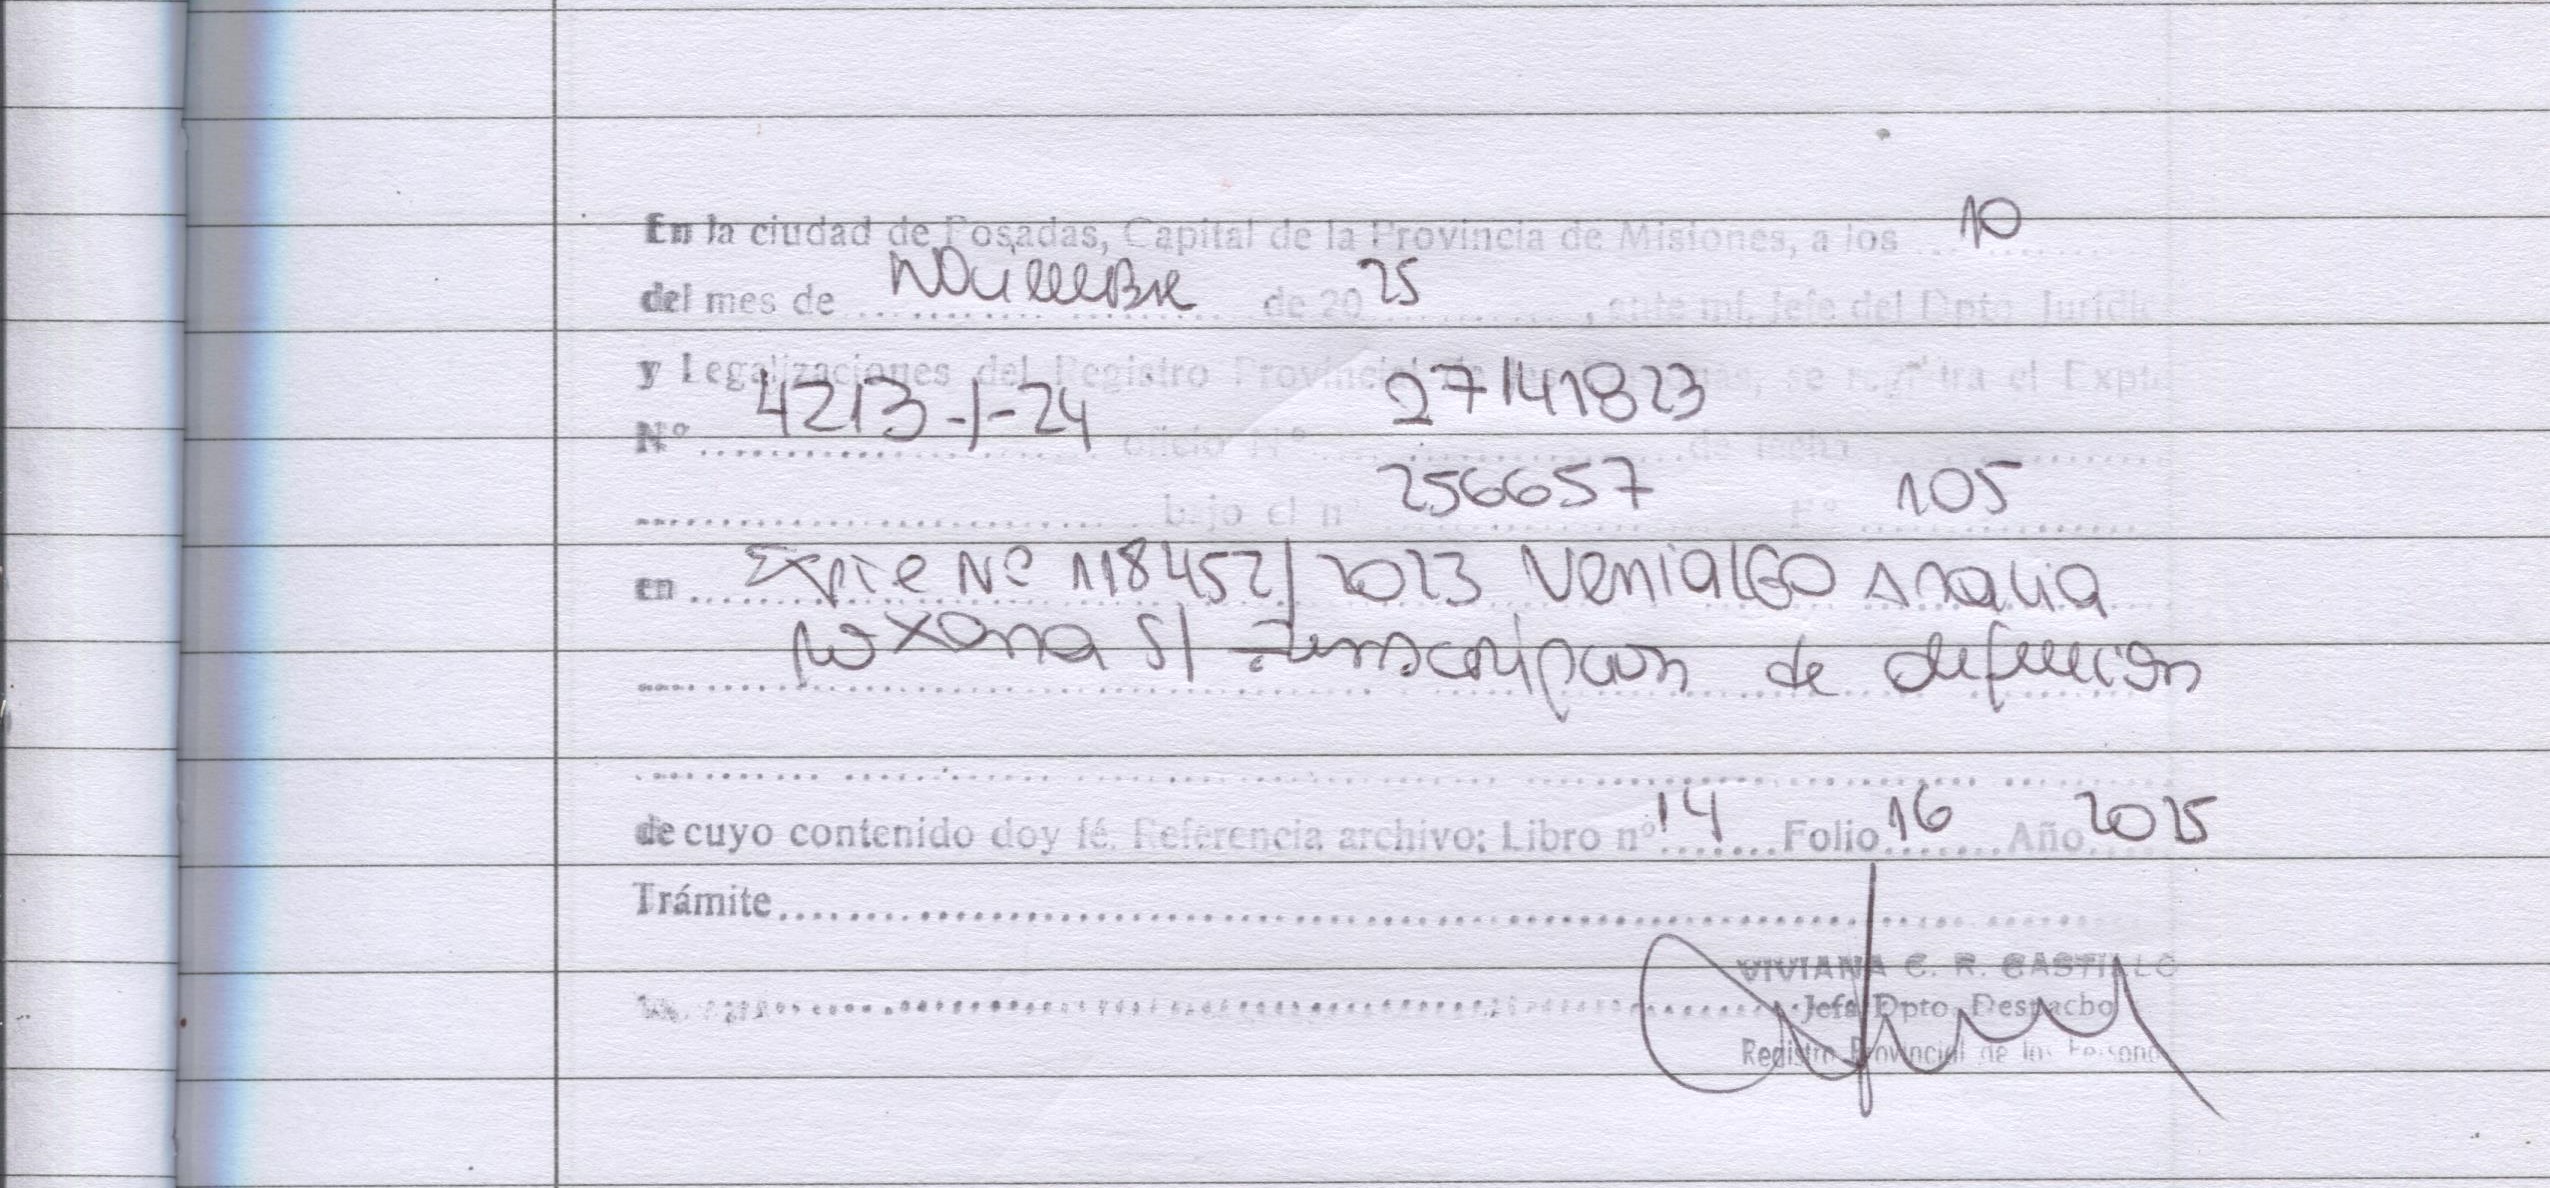 En la ciudad de Posadas, Capital de la Provincia de Misiones, a los 10
del mes de Noviembre de 2025, ante mí, Jefe del Dpto Jurídic
y Legalizaciones del Registro Provincial de las se registra el Expte
N° 4213-I-24 oficio N° 27141823 de fecha
bajo el n° 256657 F° 105
en Expte N° 118452/2023 Venialgo Analia
Roxana S/ Inscripcion de defuncion
de cuyo contenido doy fé. Referencia archivo; Libro n° 14 Folio 16 Año 2025
Trámite
VIVIANA C. R. CASTILLO
Jefa Dpto. Despacho
Registro Provincial de las Persona